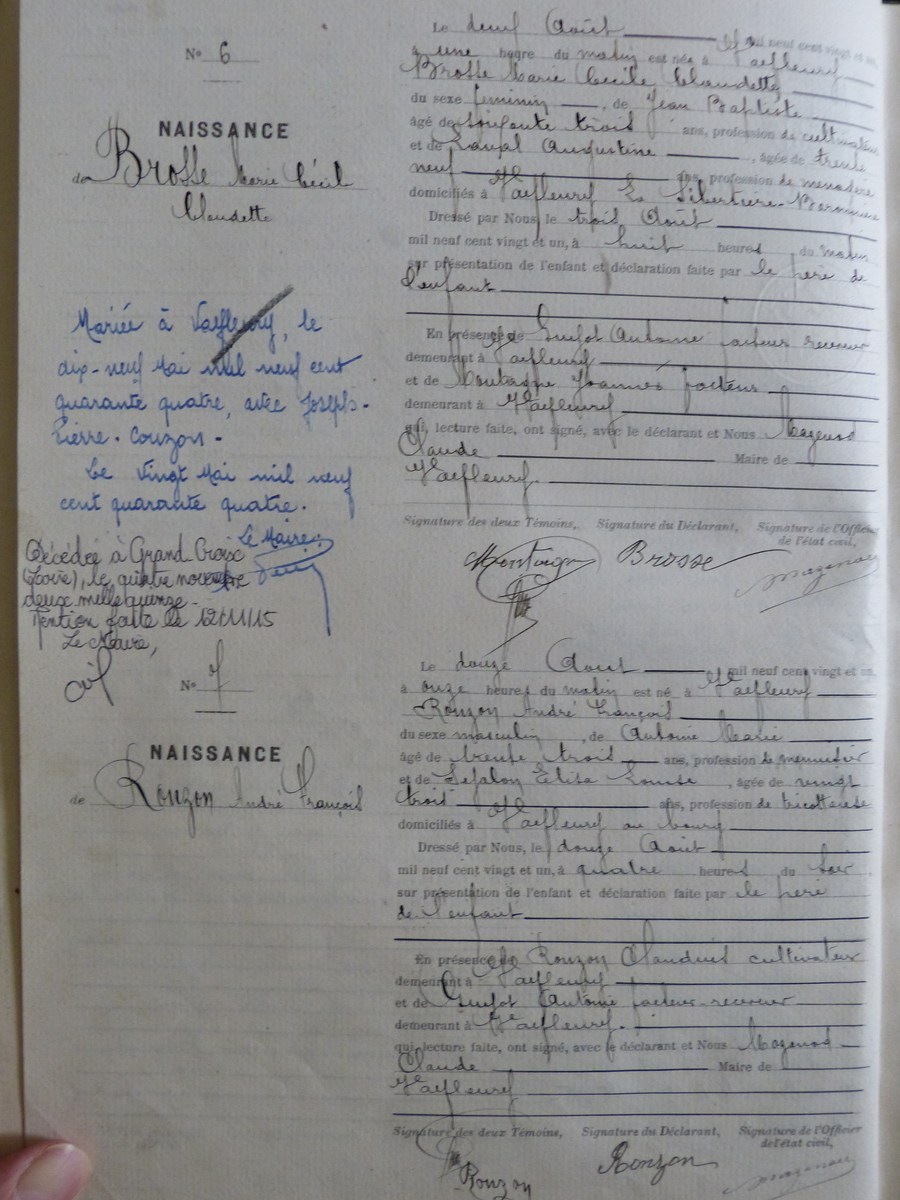 N° 6
NAISSANCE
de Brosse Marie Cécile
Claudette
Mariée à Valfleury, le
dix-neuf Mai mil neuf cent
quarante quatre, avec Joseph-
Pierre-Couzon-
Le vingt Mai mil neuf
cent quarante quatre.
Le Maire,
Décédée à Grand Croix
(Loire), le quatre novembre
deux mille quinze-
Mention faite le 12/11/15
Le Maire,
Le deux Août mil neuf cent vingt et un,
à une heure du matin est née à Valfleury
Brosse Marie Cécile Claudette
du sexe féminin, de Jean Baptiste
âgé de trois ans, profession de cultivateur
et de Augustine, âgée de trente
neuf ans, profession de ménagère
domiciliés à Valfleury La
Dressé par Nous, le trois Août
mil neuf cent vingt et un, à huit heures du matin
sur présentation de l'enfant et déclaration faite par le père de
l'enfant
En présence de Antoine facteur receveur
demeurant à Valfleury
et de Montagne Joannès facteur
demeurant à Valfleury
qui, lecture faite, ont signé, avec le déclarant et Nous Mazenod
Claude Maire de
Valfleury.
Signature des deux Témoins, Signature du Déclarant, Signature de l'Officier
de l'état civil,
Montagne Brosse Mazenod
N° 7
NAISSANCE
de Ronzon André François
Le douze Août mil neuf cent vingt et un,
à onze heures du matin est né à Valfleury
Ronzon André François
du sexe masculin, de Antoine Marie
âgé de trente trois ans, profession de menuisier
et de Elisa Louise, âgée de vingt
trois ans, profession de tricoteuse
domiciliés à Valfleury au bourg
Dressé par Nous, le douze Août
mil neuf cent vingt et un, à quatre heures du soir
sur présentation de l'enfant et déclaration faite par le père
de l'enfant
En présence de Ronzon Claudius cultivateur
demeurant à Valfleury
et de Antoine facteur-receveur
demeurant à Valfleury.
qui, lecture faite, ont signé, avec le déclarant et Nous Mazenod
Claude Maire de
Valfleury
Signature des deux Témoins, Signature du Déclarant, Signature de l'Officier
de l'état civil,
Ronzon Ronzon Mazenod